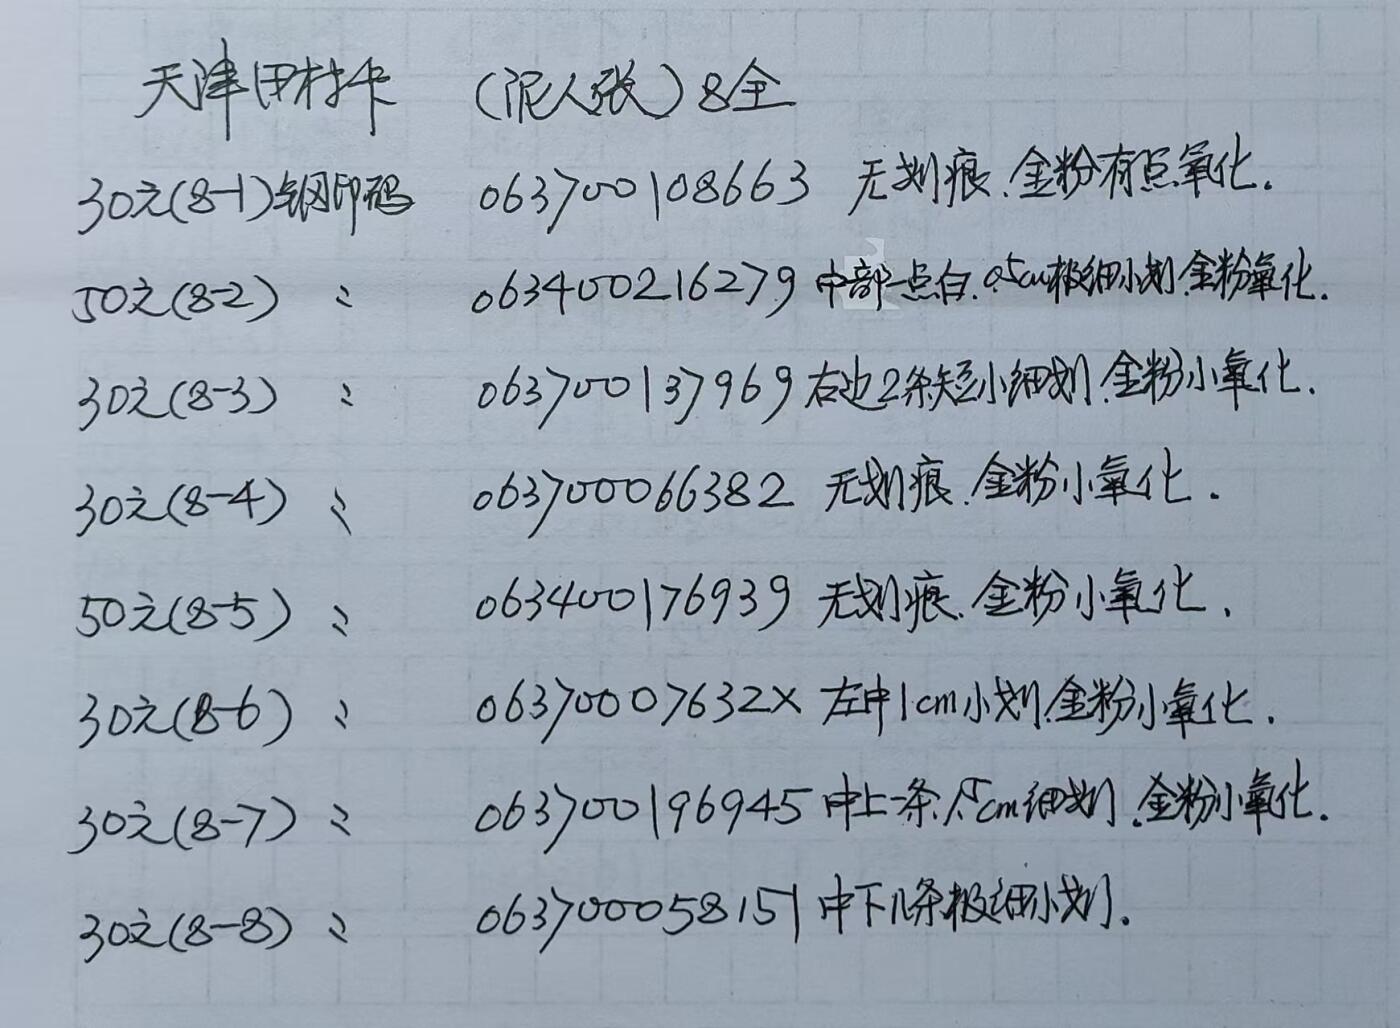 天津田村卡 (泥人张) 8全
30元(8-1)钢印码 063700108663 无划痕.金粉有点氧化.
50元(8-2) 〻 063400216279 中部一点白.0.5cm极细小划.金粉氧化.
30元(8-3) 〻 063700137969 右边2条短小细划.金粉小氧化.
30元(8-4) 〻 063700066382 无划痕.金粉小氧化.
50元(8-5) 〻 063400176939 无划痕.金粉小氧化.
30元(8-6) 〻 06370007632X 左中1cm小划.金粉小氧化.
30元(8-7) 〻 063700196945 中上一条1.5cm细划.金粉小氧化.
30元(8-8) 〻 063700058151 中下几条极细小划.